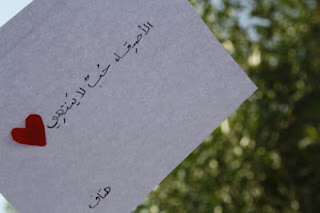 الأصدقاء حُبٌ لا ينتهي
هتاف